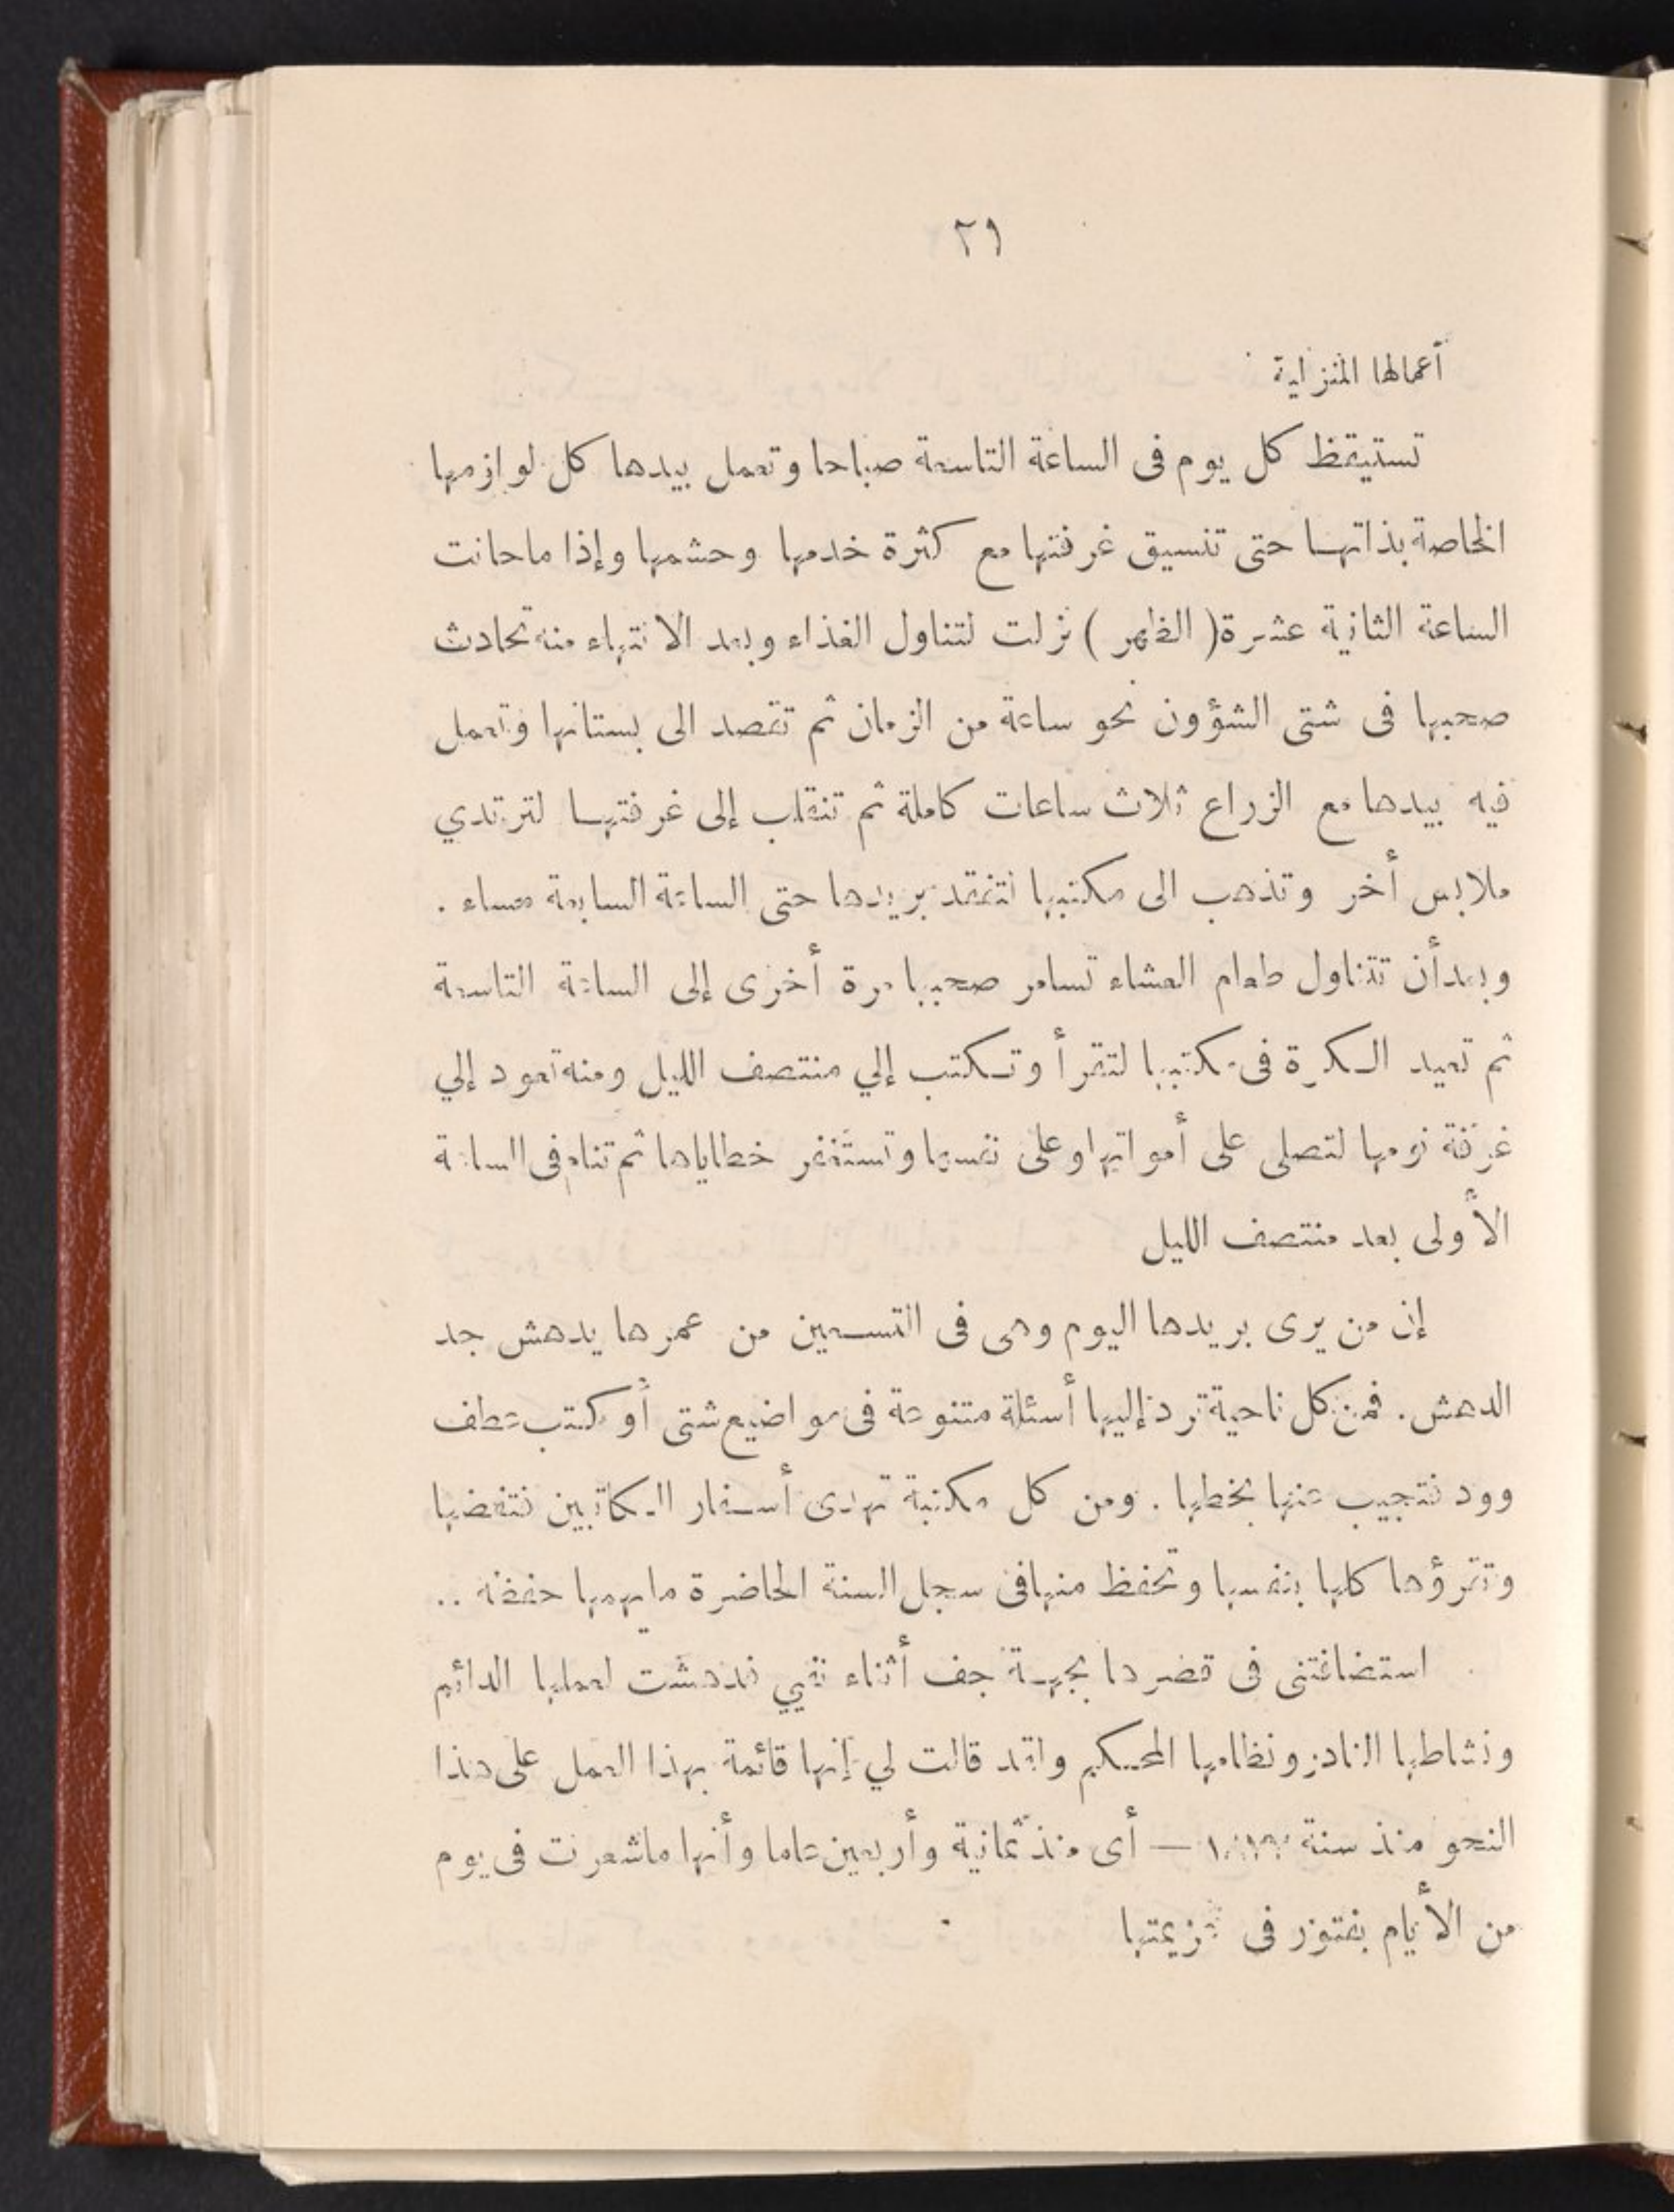 ٢٩
أعمالها المنزلية
تستيقظ كل يوم فى الساعة التاسعة صباحا وتعمل بيدها كل لوازمها
الخاصة بذاتها حتى تنسيق غرفتها مع كثرة خدمها وحشمها وإذا ماحانت
الساعة الثانية عشرة ( الظهر ) نزلت لتناول الغذاء وبعد الانتهاء منه تحادث
صحبها فى شتى الشؤون نحو ساعة من الزمان ثم تقصد الى بستانها وتعمل
فيه بيدها مع الزراع ثلاث ساعات كاملة ثم تنقلب إلى غرفتها لترتدي
ملابس أخر وتذهب الى مكتبها لتتفقد بريدها حتى الساعة السابعة مساء .
وبعد أن تتناول طعام العشاء تسامر صحبها مرة أخرى إلى الساعة التاسعة
ثم تعيد الكرة فى مكتبها لتقرأ وتكتب إلي منتصف الليل ومنه تعود إلي
غرفة نومها لتصلى على أمواتها وعلى نفسها وتستغفر خطاياها ثم تنام فى الساعة
الأولى بعد منتصف الليل
إن من يرى بريدها اليوم وهى فى التسعين من عمرها يدهش جد
الدهش . فمن كل ناحية ترد إليها أسئلة متنوعة فى مواضيع شتى أو كتب عطف
وود فتجيب عنها بخطها . ومن كل مكتبة تهدى أسفار الكاتبين فتفضها
وتقرؤها كلها بنفسها وتحفظ منها فى سجل السنة الحاضرة ما يهمها حفظه ..
استضافتنى فى قصرها بجهة جف أثناء نفيي فدهشت لعملها الدائم
ونشاطها النادر ونظامها المحكم ولقد قالت لي إنها قائمة بهذا العمل على هذا
النحو منذ سنة — أى منذ ثمانية وأربعين عاما وأنها ماشعرت فى يوم
من الأيام بفتور فى عزيمتها